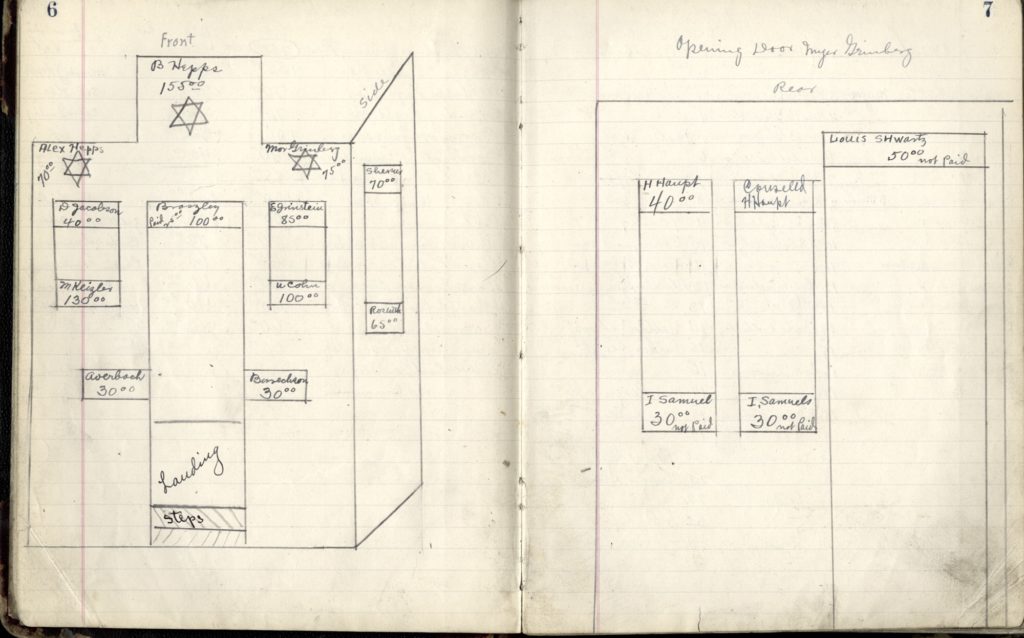 6
Front
B Hepps
155 00
Side
Alex Hepps
70 00
Mor Grinberg
75 00
Sherman
70 00
D Jacobson
40 00
Paid
100 00
E Grinstein
85 00
M Keizler
130 00
W Cohn
100 00
65 00
Averbach
30 00
30 00
Landing
Steps
7
Opening Door Myer Grinberg
Rear
Louis Shwartz
50 00
not Paid
H Haupt
40 00
H Haupt
I Samuel
30 00
not Paid
I, Samuels
30 00
not Paid